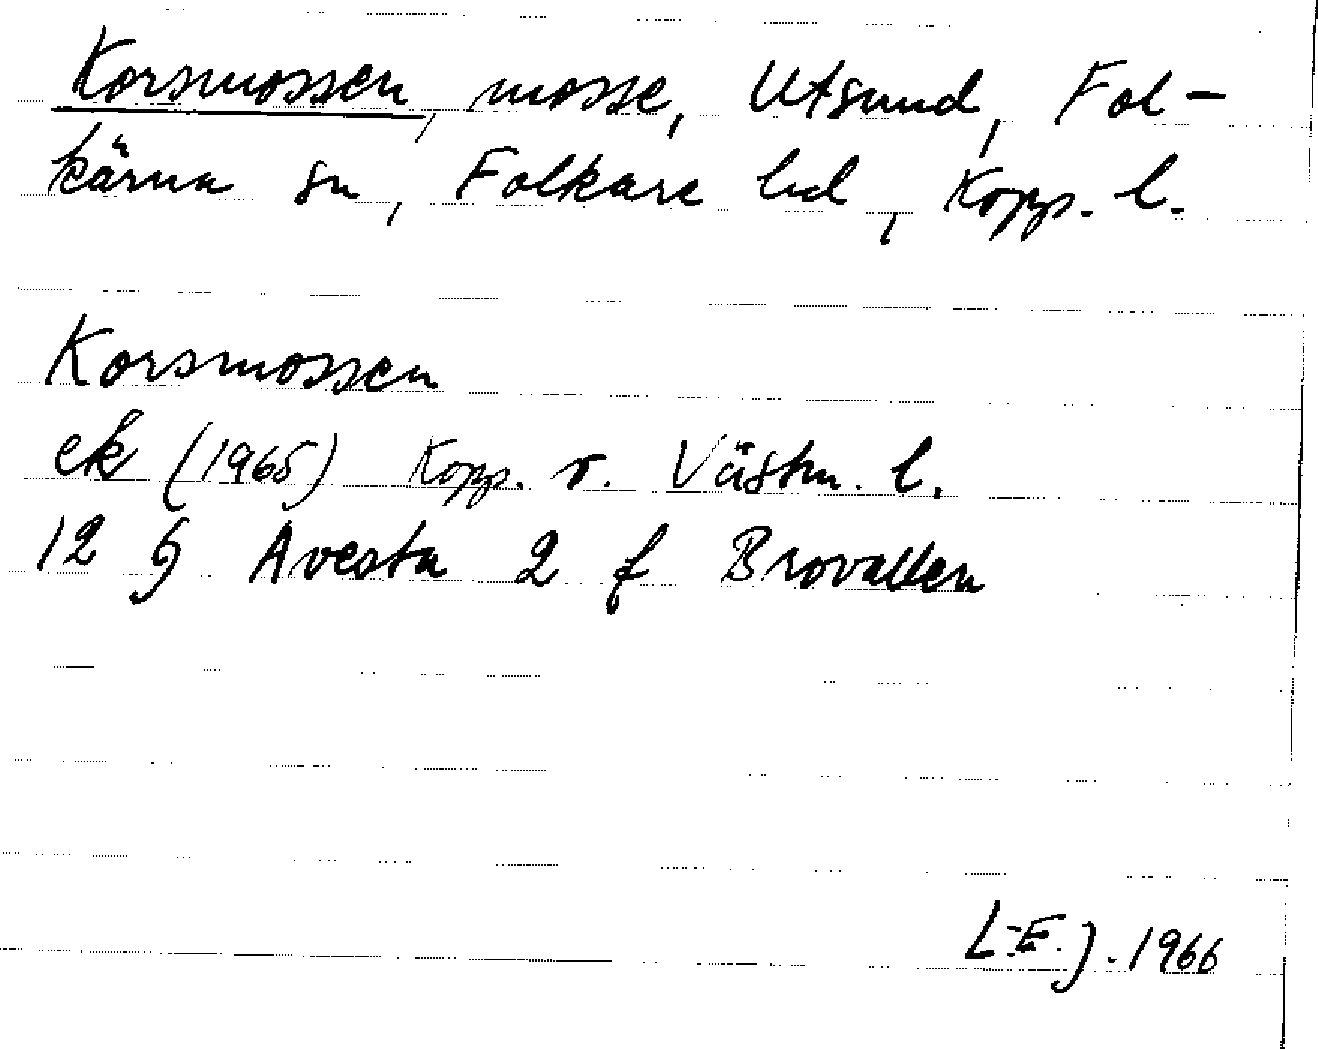 Korsmossen, mosse, Utsund, Fol-
kärna sn, Folkare hd, Kopp. l.
Korsmossen
ek (1965) Kopp. o. Västm. l.
12 G Avesta 2 f Brovallen
L-E. J. 1966